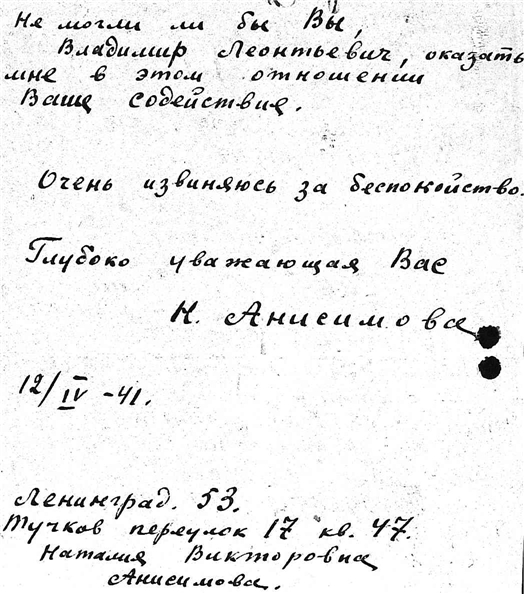 Не могли ли бы Вы,
Владимир Леонтьевич, оказать
мне в этом отношении
Ваше содействие.
Очень извиняюсь за беспокойство.
Глубоко уважающая Вас
Н. Анисимова
12/IV-41.
Ленинград. 53.
Тучков переулок 17 кв. 47.
Наталия Викторовна
Анисимова.